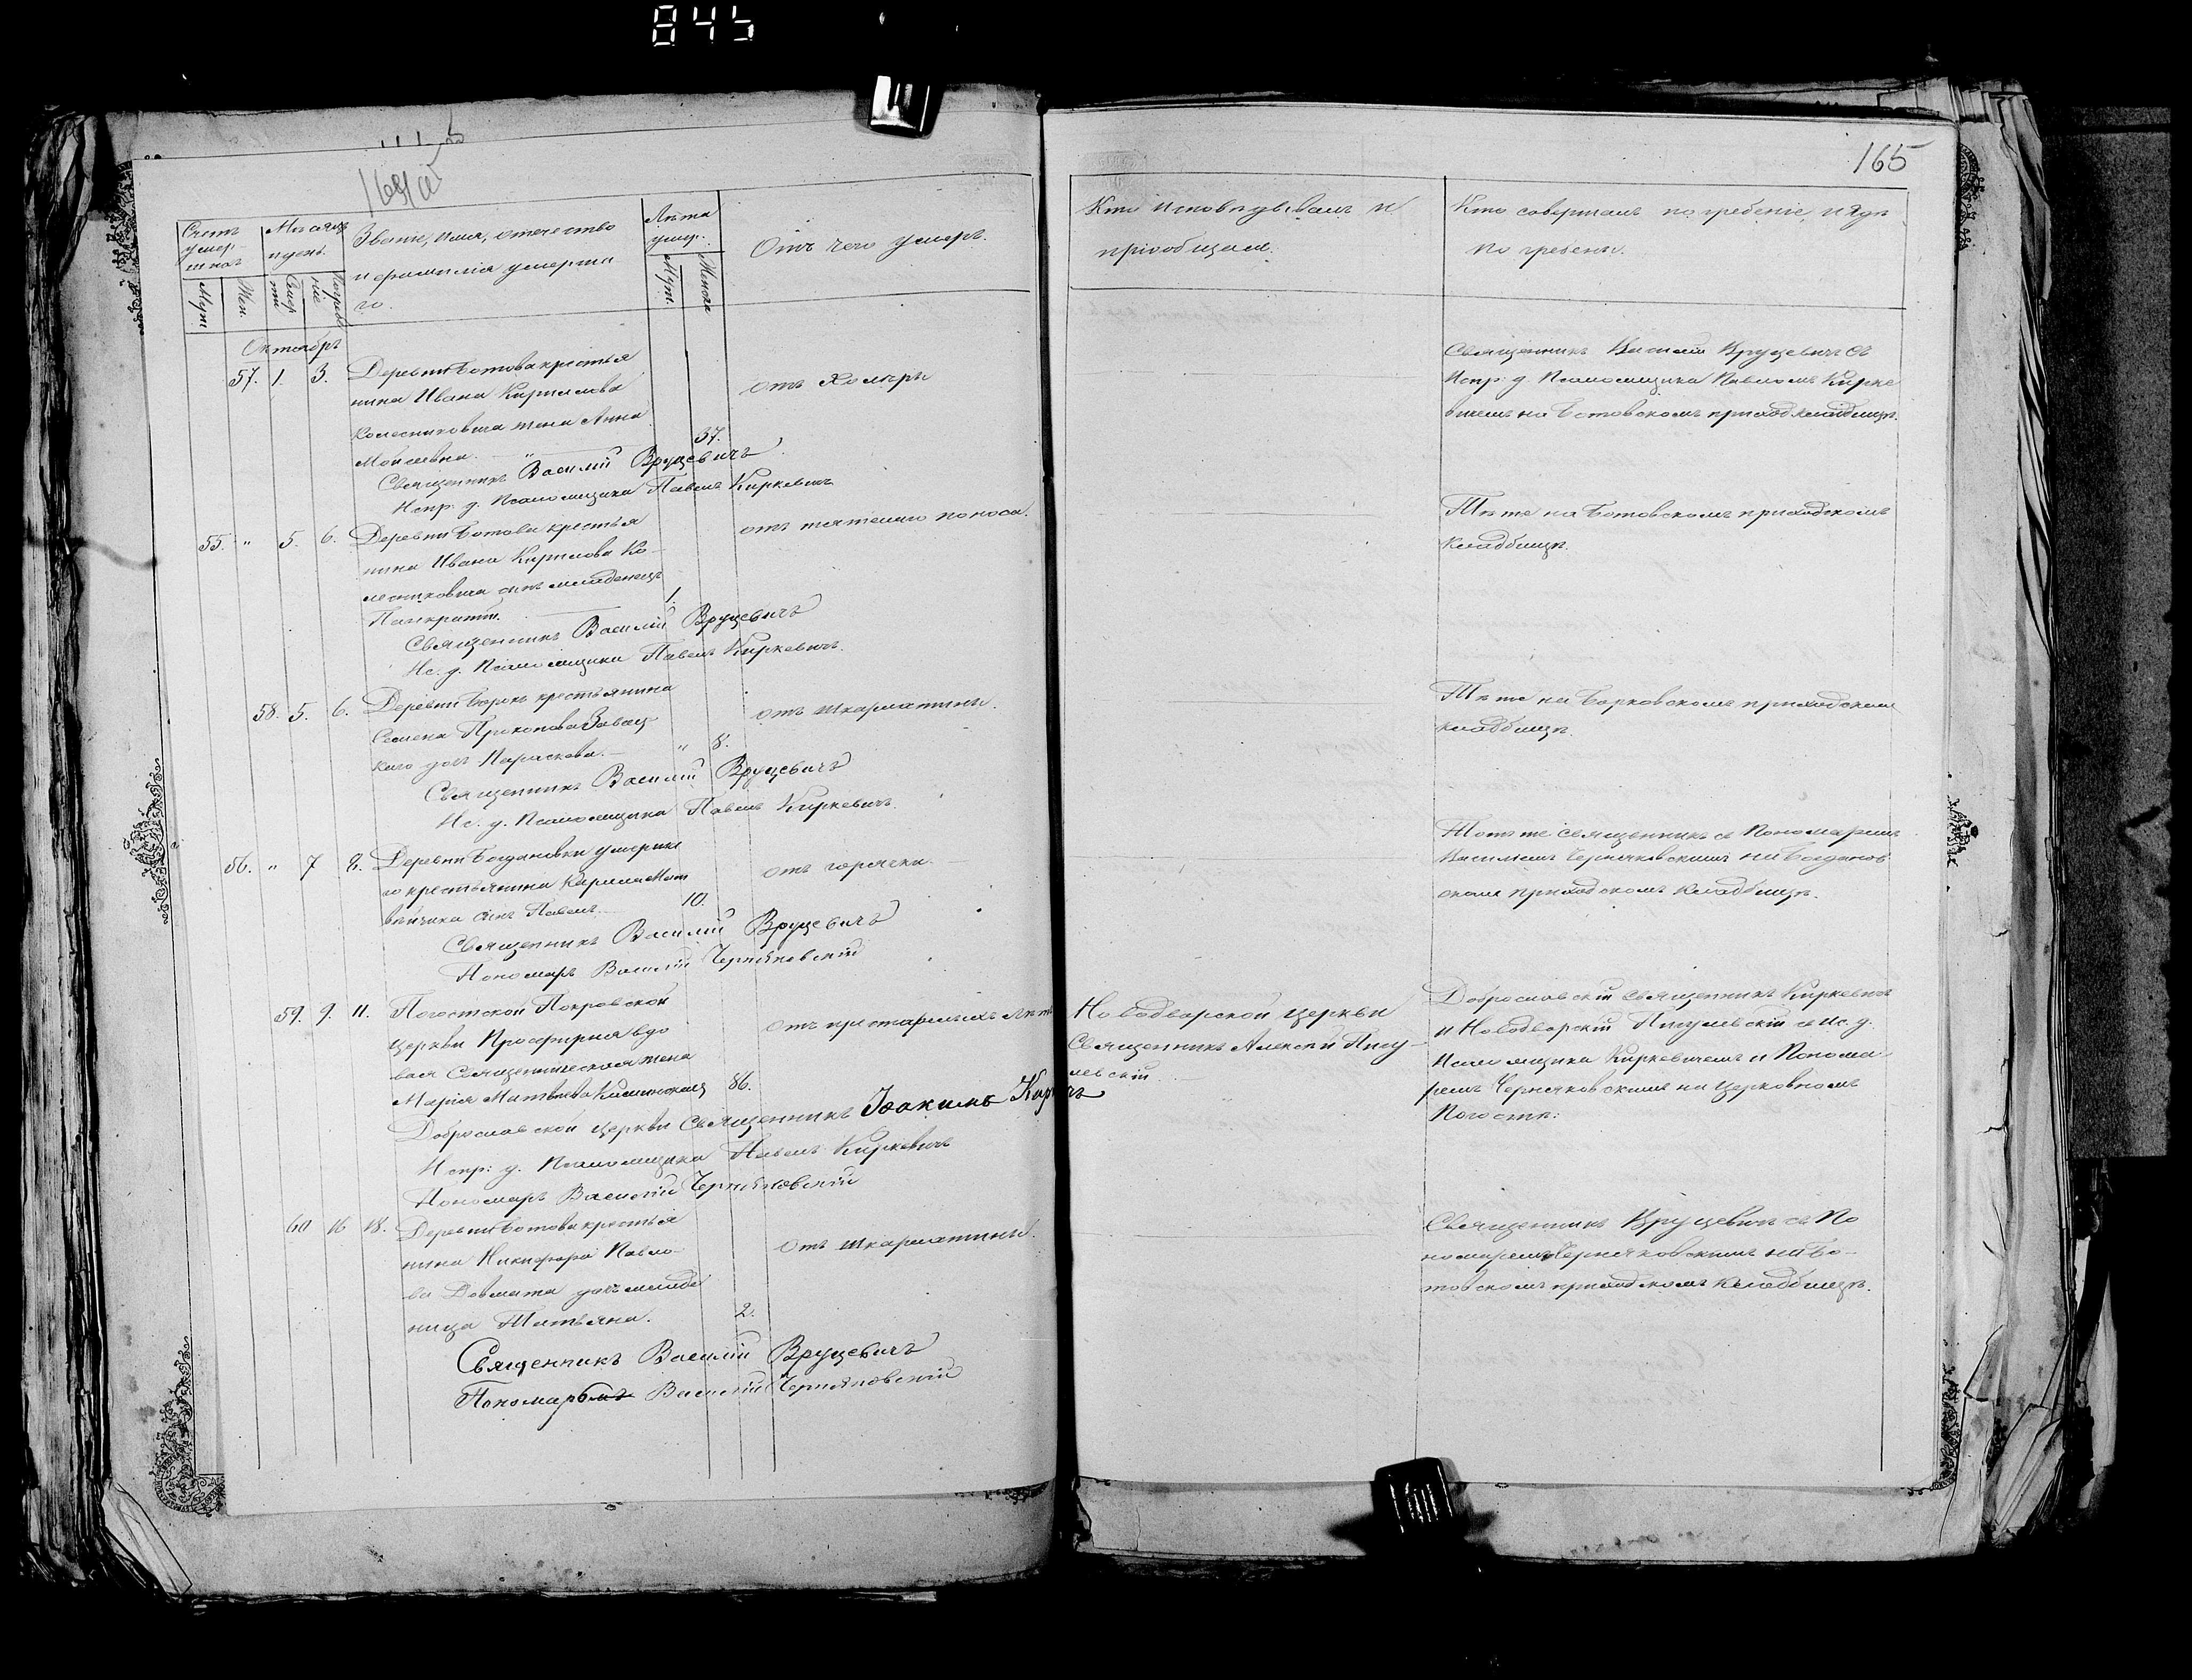 845
165
Счетъ умер-шихъ
Муж.
Жен.
Месяцъ и день.
Смерти
Погребеніе
Званіе, имя, отечество
и фамилія умерша
го.
Лѣта умер.
Муж.
Женск.
Отъ чего умеръ.
Кто исповѣдывалъ и
пріобщалъ.
Кто совершалъ погребеніе, и гдѣ
погребенъ.
Октябрь
57. 1. 3. Деревни Ботова крестья
нина Ивана Кирилова
Колесниковича жена Анна
37.
отъ Холеры
Священникъ Василій Вруцевичъ
Испр. д. Псаломщика Павелъ Киркевичъ
Священникъ Василій Вруцевичъ съ
Испр. д. Псаломщика Павломъ Кирке
вичемъ на Ботовскомъ приход. кладбищѣ.
55. " 5. 6. Деревни Ботова крестья
нина Ивана Кирилова Ко-
лесниковича сынъ младенецъ
Панкратій. 1.
отъ поноса.
Священникъ Василій Вруцевичъ
Ис. д. Псаломщика Павелъ Киркевичъ.
Тѣ же на Ботовскомъ приходскомъ
кладбищѣ.
58. 5. 6. Деревни крестьянина
Семена Прокопова Завац-
каго дочь Параскева. " 8.
отъ шкарлатины.
Священникъ Василій Вруцевичъ
Ис. д. Псаломщика Павелъ Киркевичъ.
Тѣ же на Борковскомъ приходскомъ
кладбищѣ.
56. " 7 8. Деревни Богдановки умерша
го крестьянина Кирила Мат
вѣйчика сынъ Павелъ. 10.
отъ горячки.
Священникъ Василій Вруцевичъ
Пономарь Василій Черняковскій
Тотъ же священникъ съ Пономаремъ
Василіемъ Черняковскимъ на Богданов
скомъ приходскомъ кладбищѣ.
59. 9. 11. Погостской Покровской
церкви Просфирня вдо
вая Священническая жена
Марія Матвѣева 86.
отъ престарѣлыхъ лѣтъ
Доброславской церкви Священникъ Іоакимъ
Испр: д. Псаломщика Павелъ Киркевичъ
Пономарь Василій Черняковскій
Новодворской церкви
Священникъ Алексѣй Пигу-
левскій.
Доброславскій священникъ Киркевичъ
и Новодворскій Пигулевскій съ ис. д.
Псаломщика Киркевичемъ и Понома-
ремъ Черняковскимъ на церковномъ
Погостѣ:
60 16 18. Деревни Ботова крестья
нина Никифора Павло-
ва Довмата дочь младе
ница Татьяна. 2.
отъ шкарлатины.
Священникъ Василій Вруцевичъ
Пономарь Василій Черняковскій
Священникъ Вруцевичъ съ По
номаремъ Черняковскимъ на Бо-
товскомъ приходскомъ кладбищѣ.